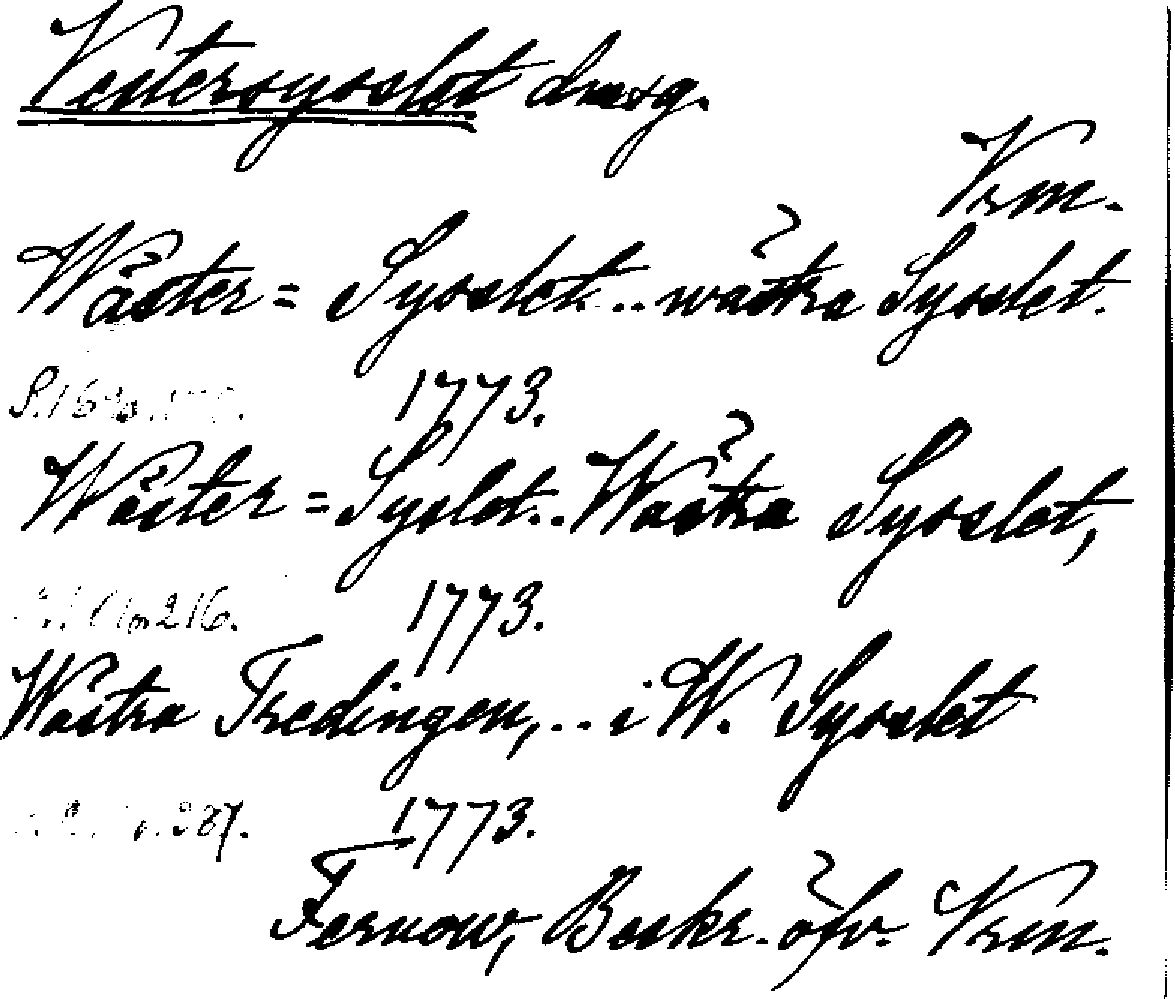 Vestersysslet dmsg.
Vrm.
Wäster= Sysslet... wästra Sysslet.
1773.
Wäster= Syslet... Wästra Sysslet,
216. 1773.
Wästra Tredingen,... i W. Sysslet
1773.
Fernow, Beskr. öfv. Vrm.